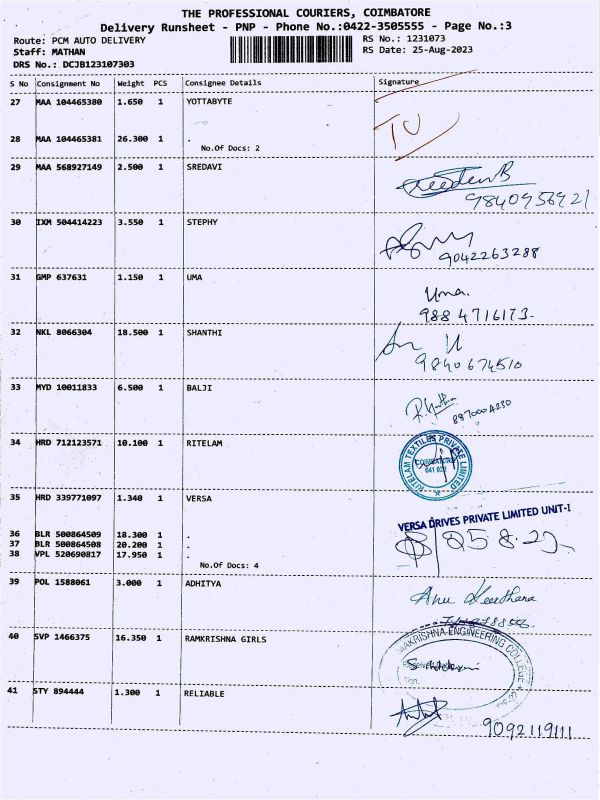 THE PROFESSIONAL COURIERS, COIMBATORE
Delivery Runsheet - PNP - Phone No.:0422-3505555 - Page No.:3
Route: PCM AUTO DELIVERY RS No.: 1231073
Staff: MATHAN RS Date: 25-Aug-2023
DRS No.: DCJB123107303
S No Consignment No Weight PCS Consignee Details Signature
27 MAA 104465380 1.650 1 YOTTABYTE
28 MAA 104465381 26.300 1 .
No.Of Docs: 2
29 MAA 568927149 2.500 1 SREDAVI
9840956921
30 IXM 504414223 3.550 1 STEPHY
9042263288
31 GMP 637631 1.150 1 UMA Uma.
9884716173-
32 NKL 8066304 18.500 1 SHANTHI
9840674510
33 MYD 10011833 6.500 1 BALJI
8870004230
34 HRD 712123571 10.100 1 RITELAM
RITELAM TEXTILES PRIVATE LIMITED
COIMBATORE
641 021
35 HRD 339771097 1.340 1 VERSA
VERSA DRIVES PRIVATE LIMITED UNIT-I
36 BLR 500864509 18.300 1 .
37 BLR 500864508 20.200 1 .
38 VPL 520690817 17.950 1 .
No.Of Docs: 4
39 POL 1588061 3.000 1 ADHITYA
Anu
40 SVP 1466375 16.350 1 RAMKRISHNA GIRLS
MAKRISHNA ENGINEERING COLLEGE
41 STY 894444 1.300 1 RELIABLE
9092119111